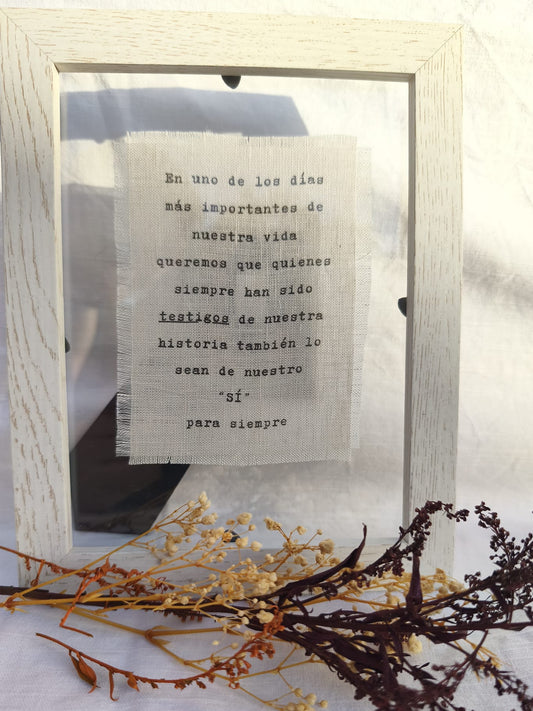 En uno de los días
más importantes de
nuestra vida
queremos que quienes
siempre han sido
testigos de nuestra
historia también lo
sean de nuestro
"SÍ"
para siempre